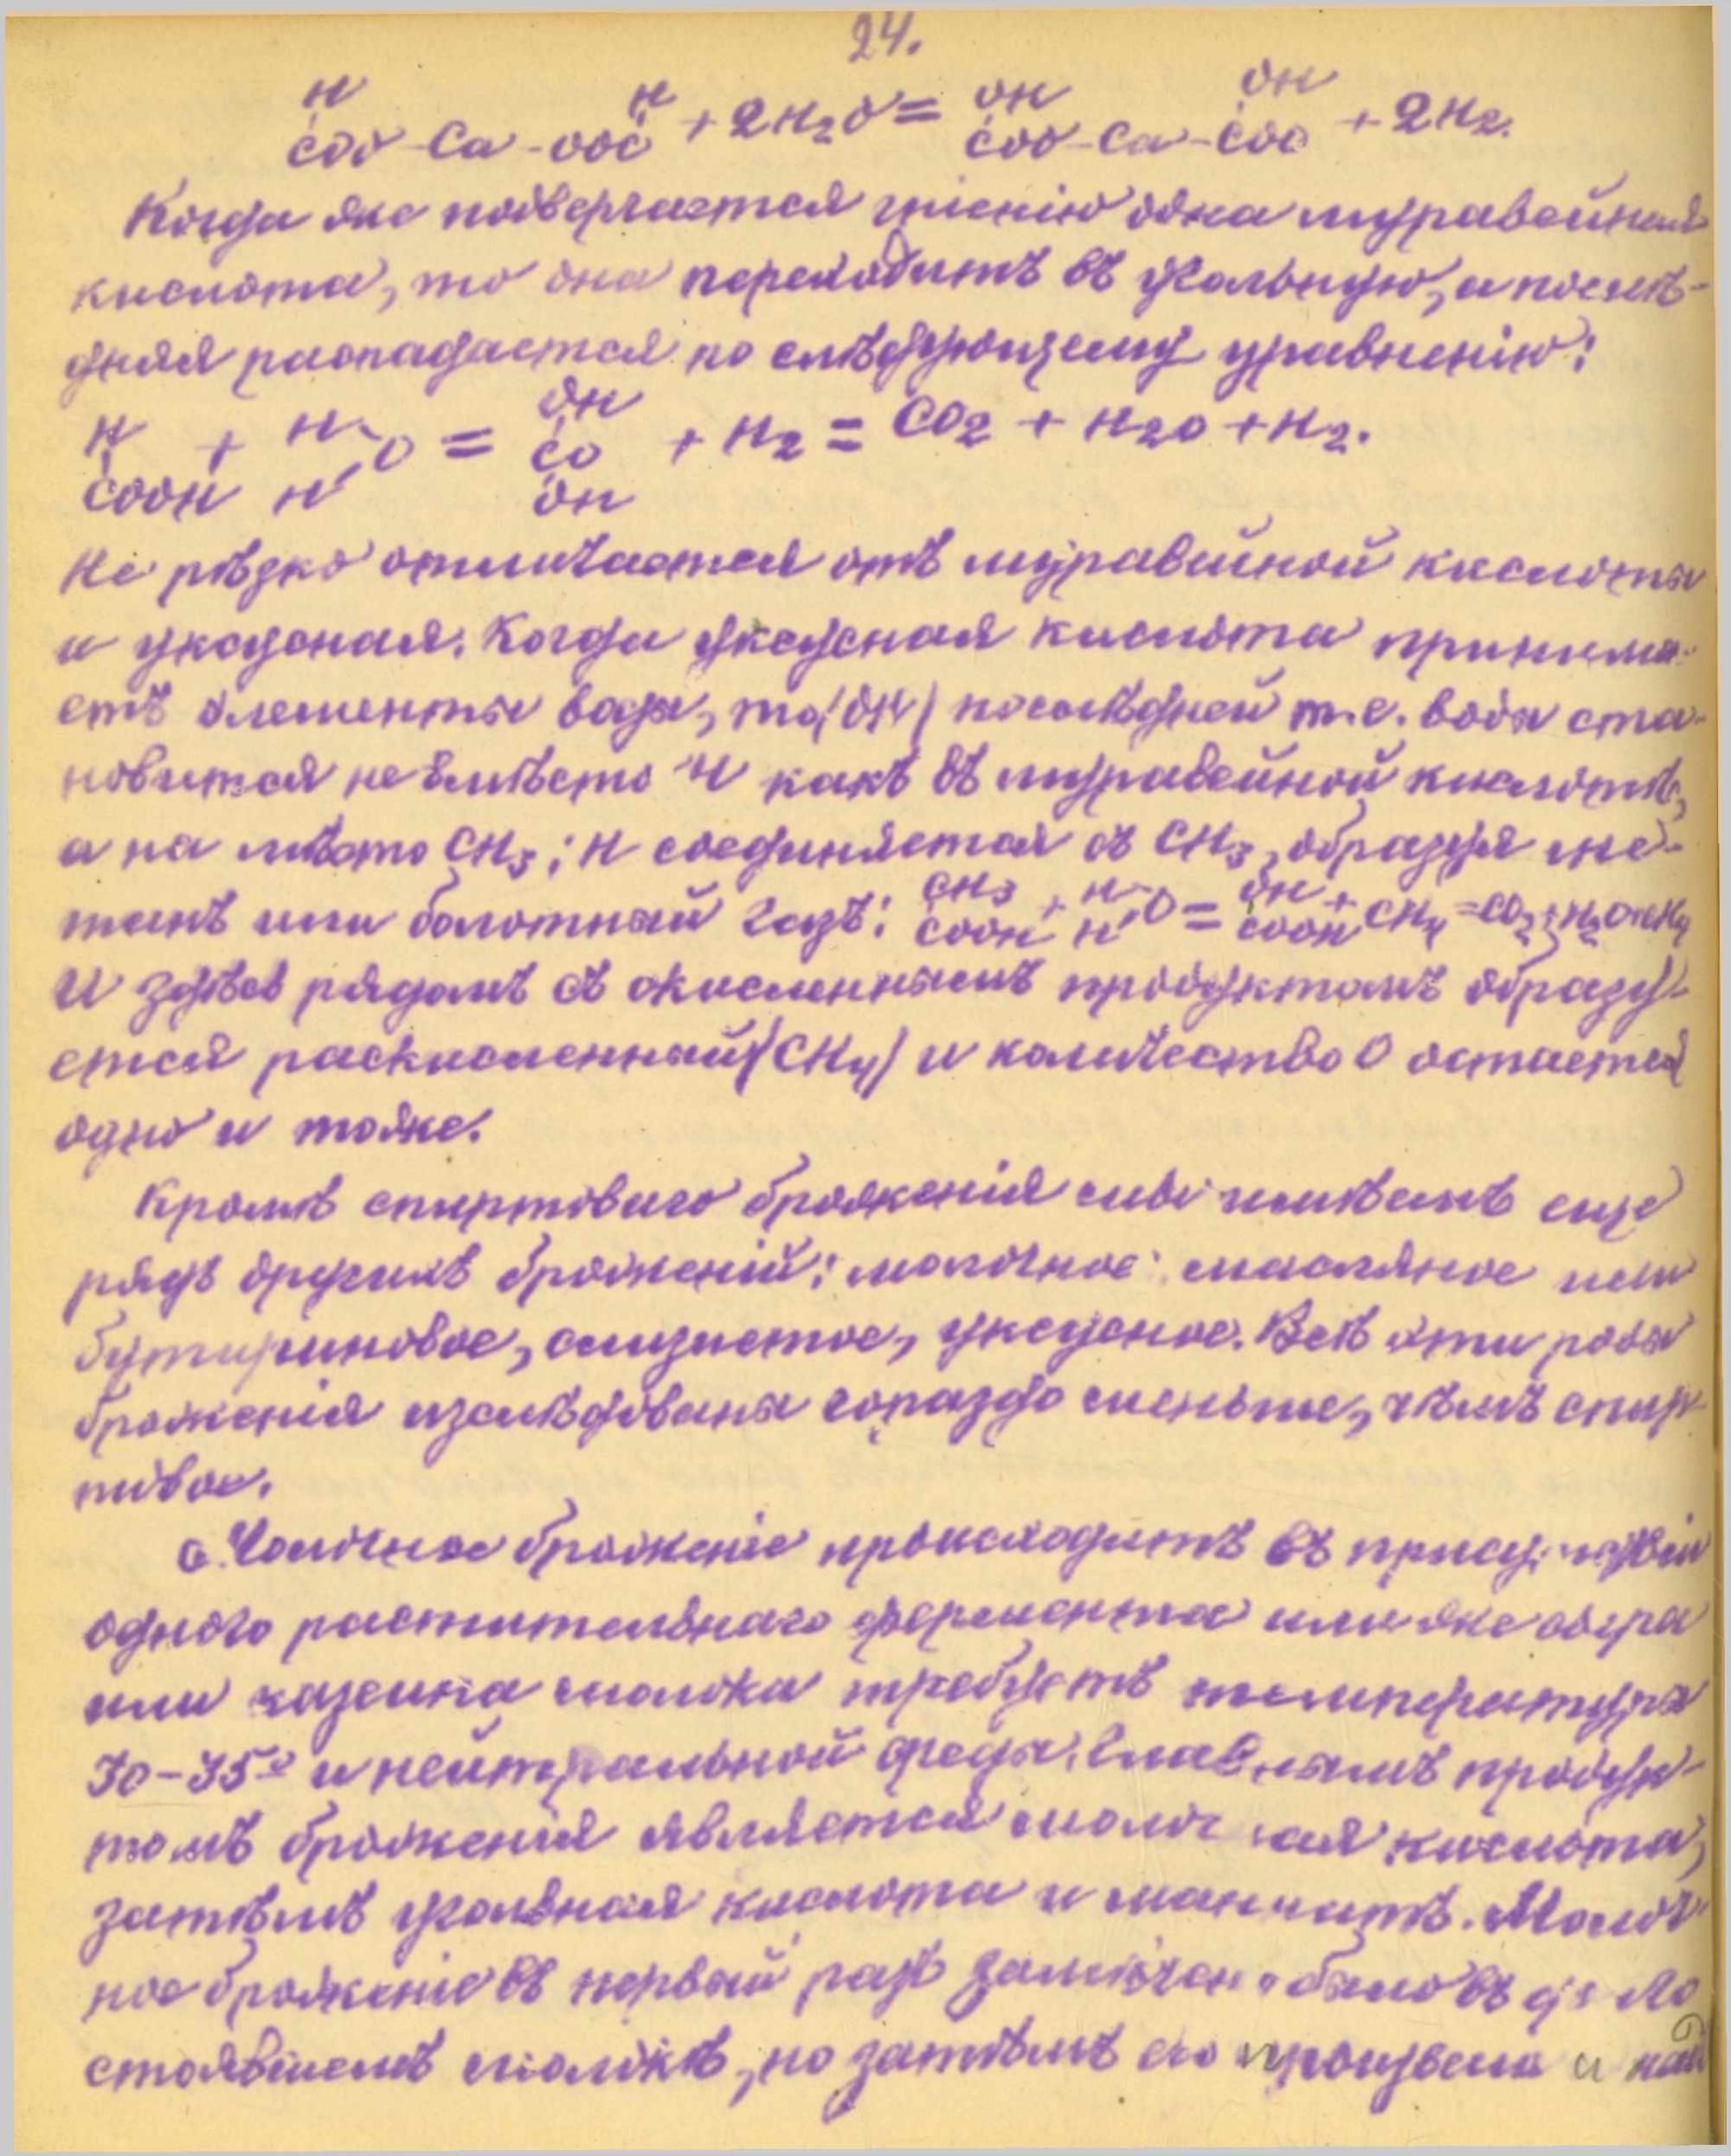 24.
H H OH OH
COO-Ca-OOC + 2H2O = COO-Ca-COO + 2H2.
Когда же подвергается гніенію одна муравейная
кислота, то она переходитъ въ угольную, а послѣ-
дняя распадается по слѣдующему уравненію:
H + H OH
COOH H O = CO + H2 = CO2 + H2O + H2.
OH
Не рѣзко отличается отъ муравейной кислоты
и уксусная. Когда уксусная кислота принима-
етъ элементы воды, то (OH) послѣдней т.е. воды ста-
новится не вмѣсто H какъ въ муравейной кислотѣ,
а на мѣсто CH3; H соединяется съ CH3, образуя ме-
танъ или болотный газъ: CH3 COOH + H H O = OH COOH + CH4 = CO2 + H2O + CH4
И здѣсь рядомъ съ окисленнымъ продуктомъ образу-
ется раскисленный (CH4) и количество O остается
одно и тоже.
Кромѣ спиртоваго броженія мы имѣемъ еще
рядъ другихъ броженій: молочное, масляное или
бутириновое, слизистое, уксусное. Всѣ эти роды
броженія изслѣдованы гораздо меньше, чѣмъ спир-
товое.
а. Молочное броженіе происходитъ въ присутствіи
одного растительнаго фермента или же сыра
или казеина молока требуетъ температуры
30-35° и нейтральной среды. Главнымъ продук-
томъ броженія является молочная кислота,
затѣмъ угольная кислота и маннитъ. Молоч-
ное броженіе въ первый разъ замѣчено было въ
стоявшемъ молокѣ, но затѣмъ его произвели и надъ